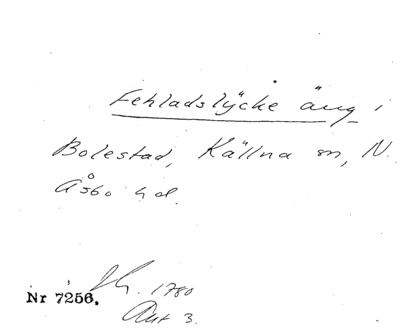 Fehladslÿcke äng i
Bolestad, Källna sn, N.
Åsbo hd.
Nr 7256. 1780
Akt 3.